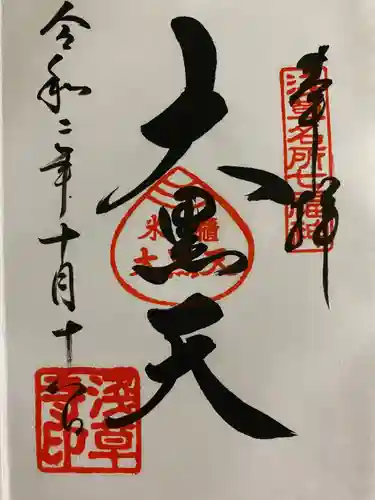 奉拝
浅草名所七福神
大黒天
米櫃
大黒天
令和二年十月十八日
浅草寺印